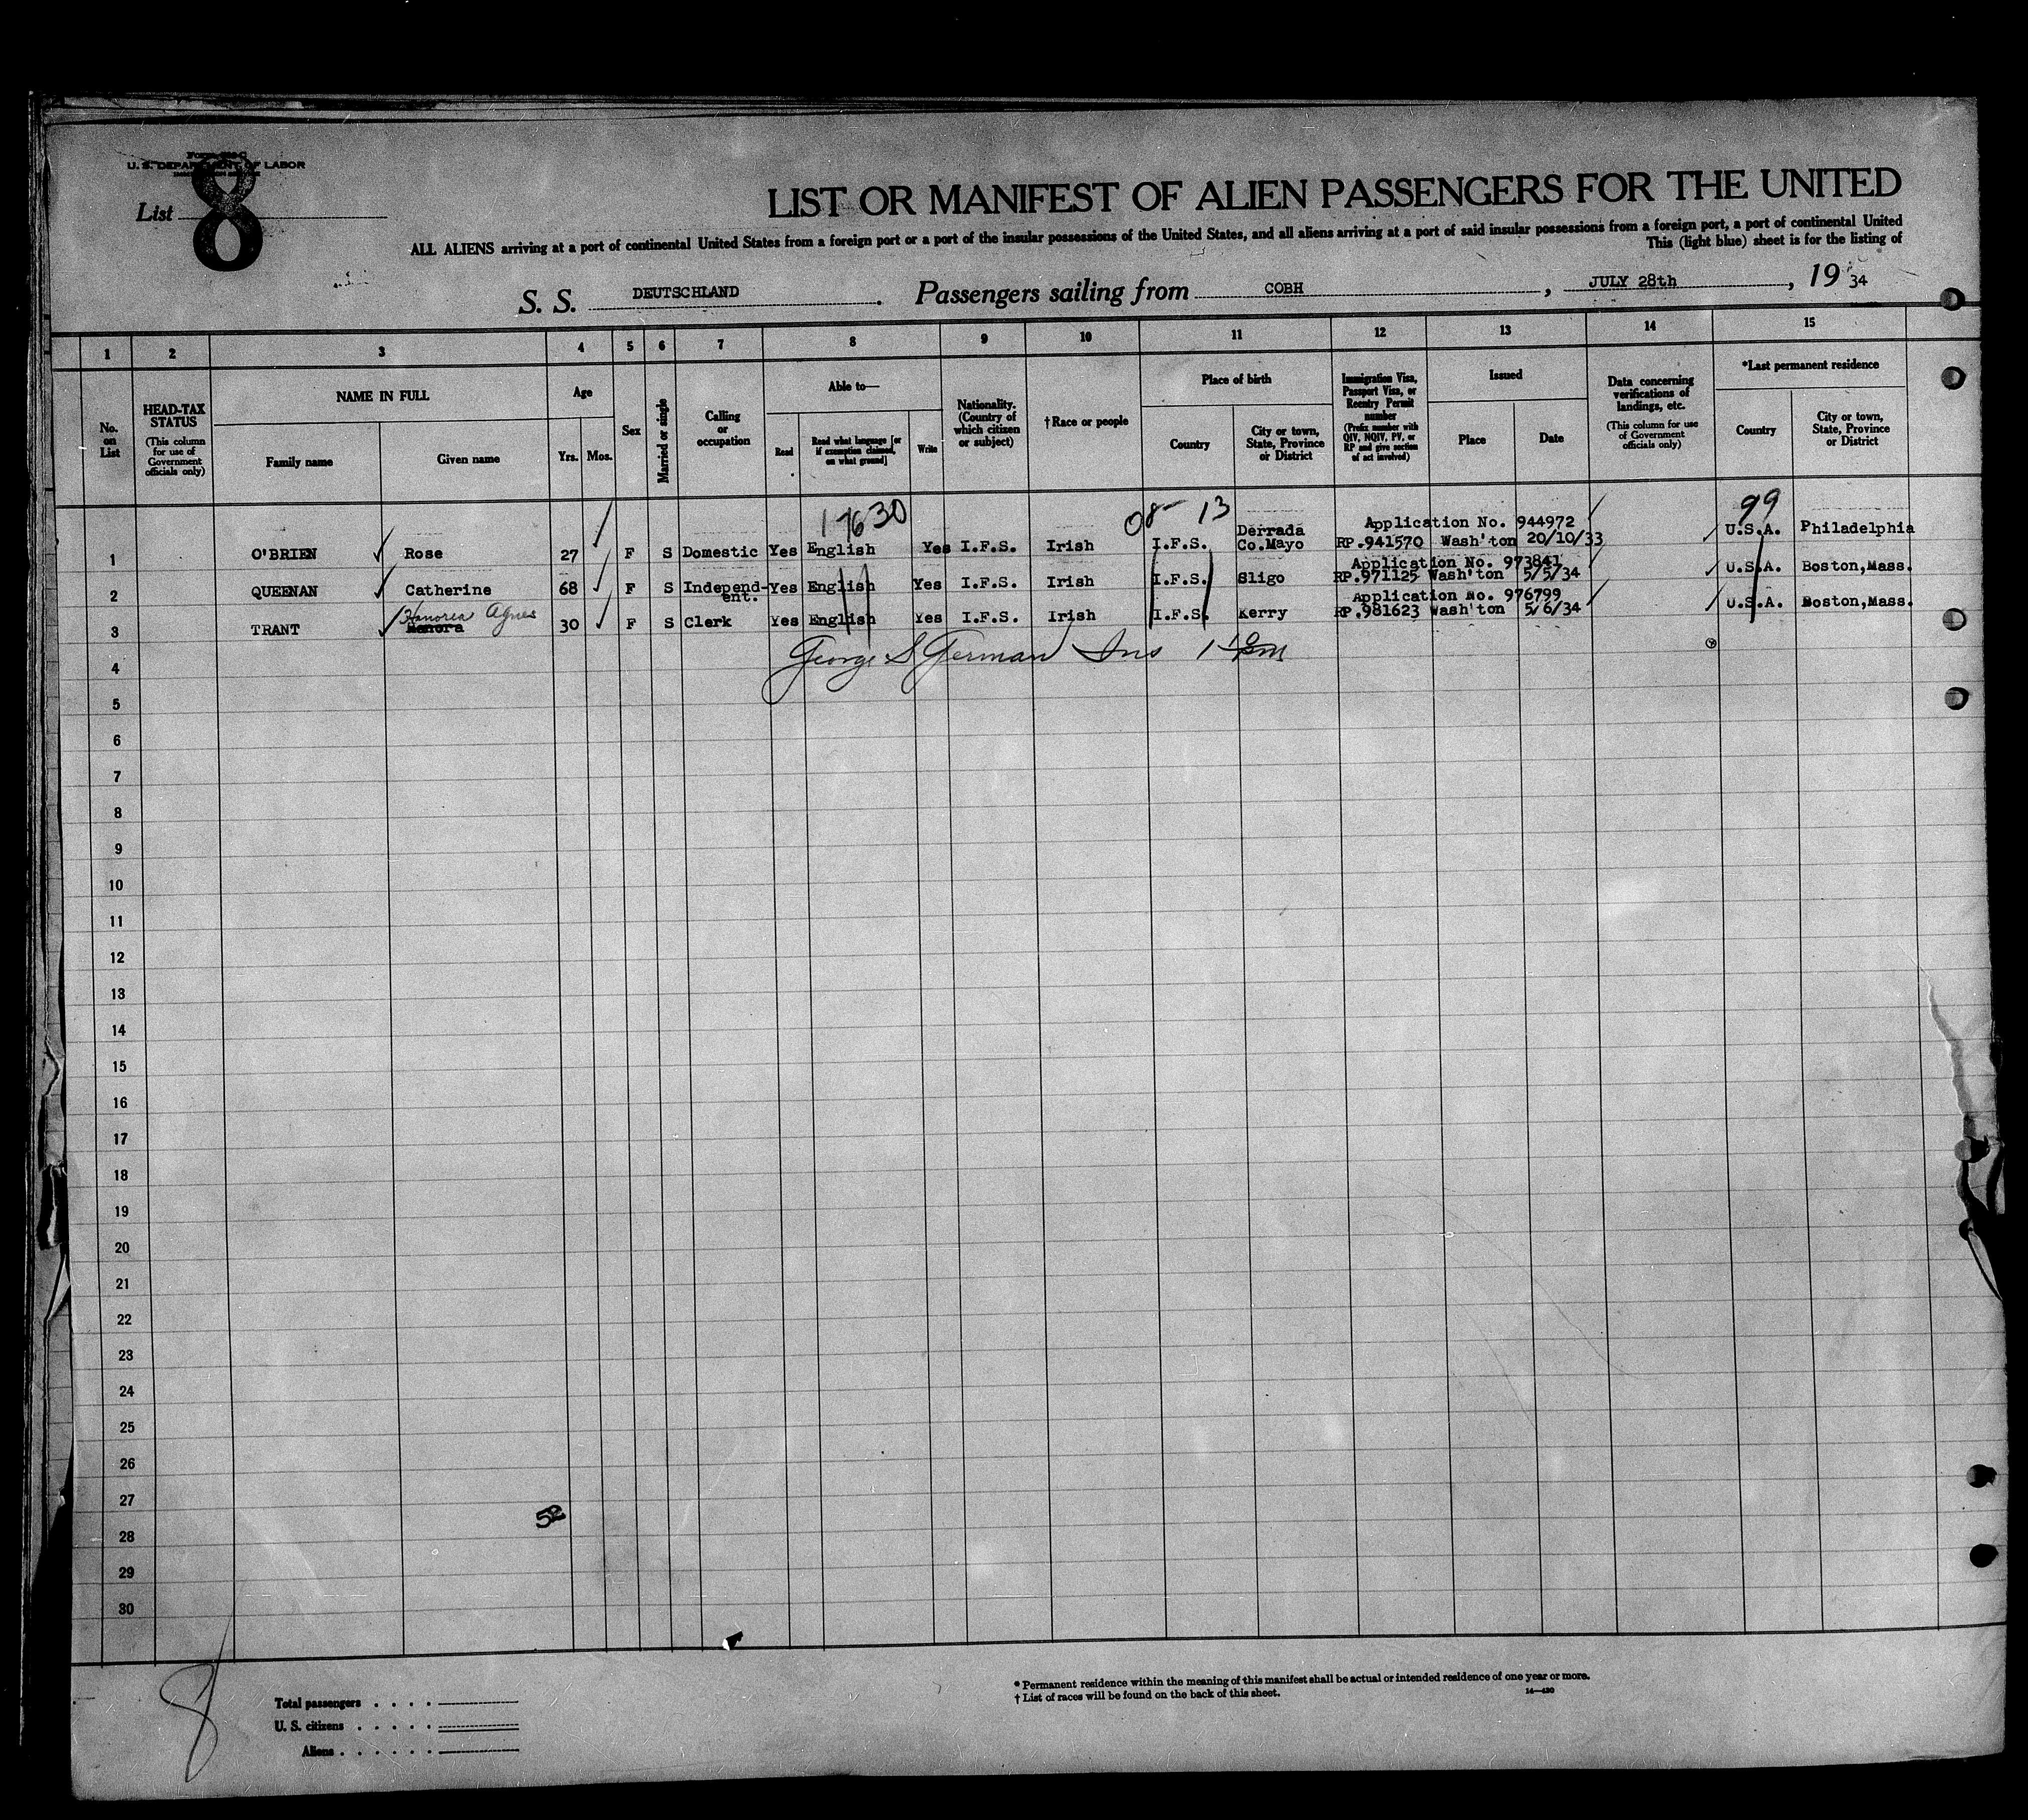 U. S. DEPARTMENT OF LABOR
List 8
LIST OR MANIFEST OF ALIEN PASSENGERS FOR THE UNITED
ALL ALIENS arriving at a port of continental United States from a foreign port or a port of the insular possessions of the United States, and all aliens arriving at a port of said insular possessions from a foreign port, a port of continental United
This (light blue) sheet is for the listing of
S. S. DEUTSCHLAND. Passengers sailing from COBH, JULY 28th, 19 34
1 2 3 4 5 6 7 8 9 10 11 12 13 14 15
No. on List
HEAD-TAX STATUS (This column for use of Government officials only)
NAME IN FULL
Family name
Given name
Age
Yrs. Mos.
Sex
Married or single
Calling or occupation
Able to—
Read
Read what language [or if exemption claimed, on what ground]
Write
Nationality. (Country of which citizen or subject)
†Race or people
Place of birth
Country
City or town, State, Province or District
Immigration Visa, Passport Visa, or Reentry Permit number (Prefix number with QIV, NQIV, PV, or RP and give section of act involved)
Issued
Place
Date
Data concerning verifications of landings, etc. (This column for use of Government officials only)
*Last permanent residence
Country
City or town, State, Province or District
17630 08- 13 99
1 O'BRIEN Rose 27 F S Domestic Yes English Yes I.F.S. Irish I.F.S. Derrada Co.Mayo Application No. 944972 RP.941570 Wash'ton 20/10/33 U.S.A. Philadelphia
2 QUEENAN Catherine 68 F S Independ-ent. Yes English Yes I.F.S. Irish I.F.S. Sligo Application No. 973841 RP.971125 Wash'ton 5/5/34 U.S.A. Boston,Mass.
3 TRANT Honorea Agnes 30 F S Clerk Yes English Yes I.F.S. Irish I.F.S. Kerry Application No. 976799 RP.981623 Wash'ton 5/6/34 U.S.A. Boston,Mass.
George S German Ins
4
5
6
7
8
9
10
11
12
13
14
15
16
17
18
19
20
21
22
23
24
25
26
27
52
28
29
30
8
Total passengers . . . .
U. S. citizens . . . . .
Aliens . . . . . .
* Permanent residence within the meaning of this manifest shall be actual or intended residence of one year or more.
† List of races will be found on the back of this sheet.
14—430